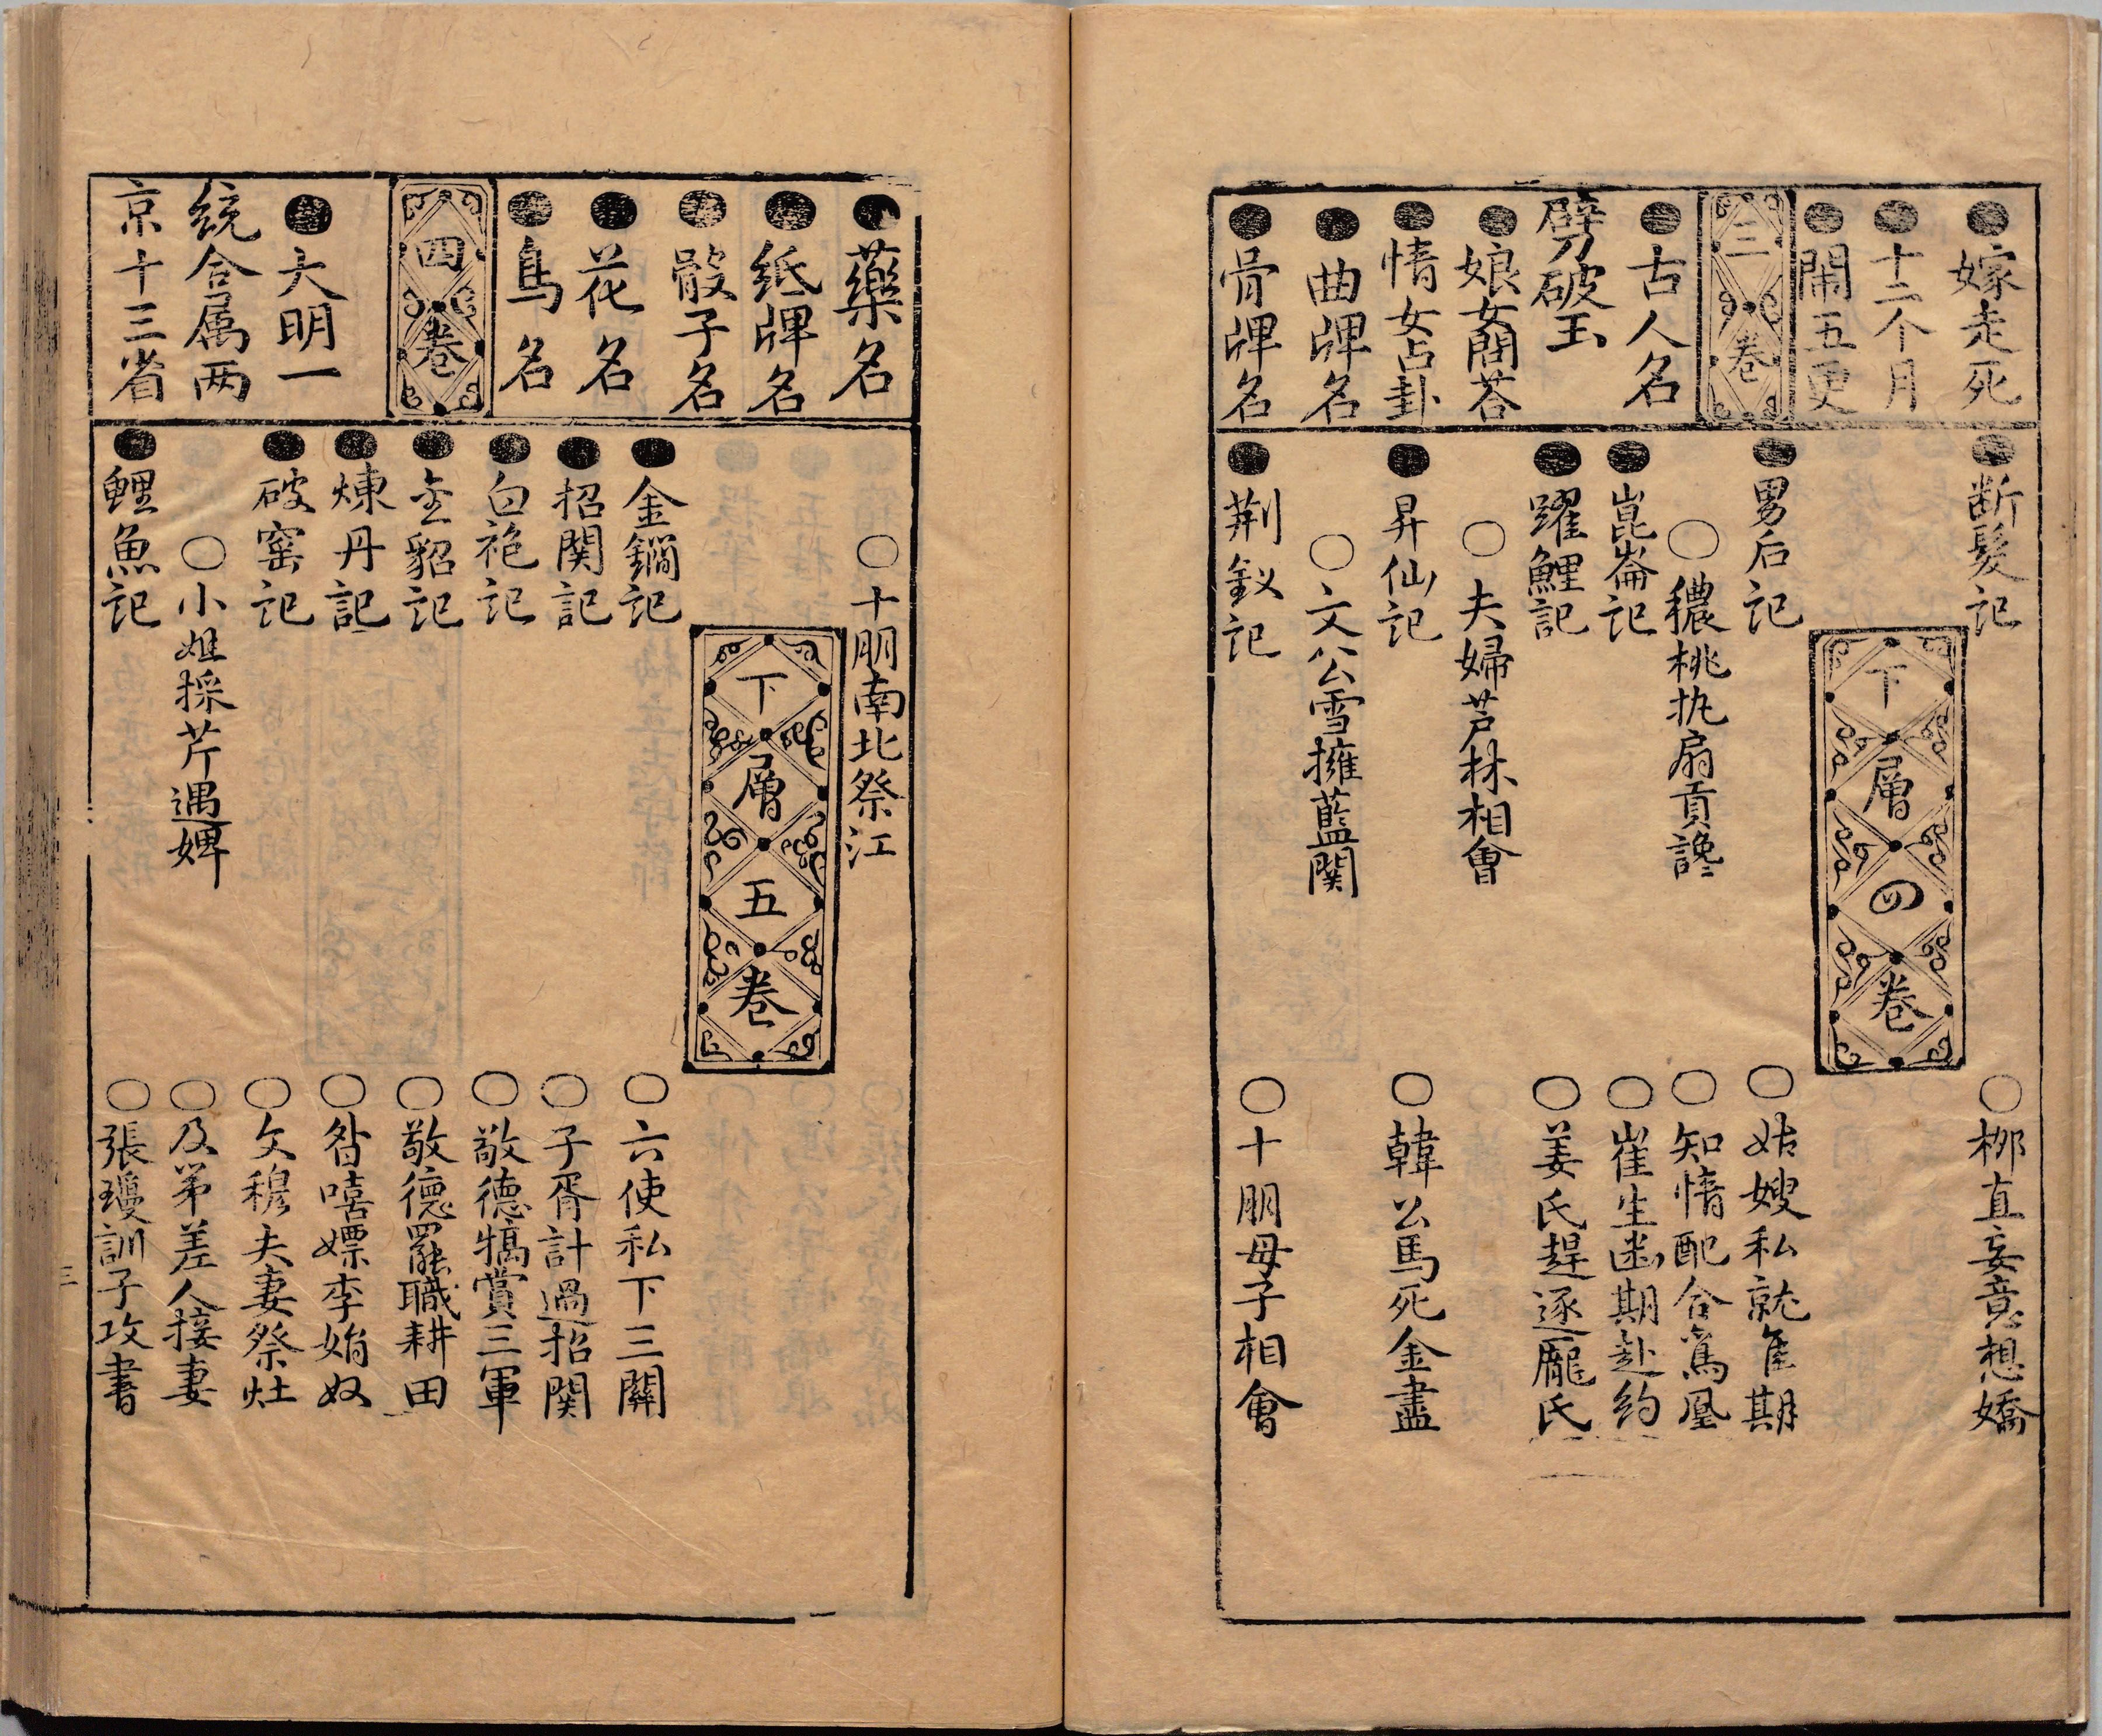 嫁走死
十二个月
閙五更
三卷
古人名
劈破玉
娘女問荅
情女占卦
曲牌名
骨牌名
断髮記
栁直妄意想嬌
下層四卷
男后記
姑嫂私就隹期
穠桃执扇貢讒
知情配合鸞凰
崑崙記
崔生幽期赴约
躍鯉記
姜氏趕逐龐氏
夫婦芦林相會
昇仙記
韓公馬死金盡
文公雪擁藍関
荆釵記
十朋母子相會
藥名
纸牌名
骰子名
花名
鳥名
四卷
大明一
统合属两
京十三省
十朋南北祭江
下層五卷
金鐧記
六使私下三關
招関記
子胥計過招関
白袍記
敬德犒賞三軍
金貂記
敬德罷職耕田
煉丹記
嫖李娟奴
破窑記
文穆夫妻祭灶
小姐採芹遇婢
及第差人接妻
鯉魚記
張瓊訓子攻書
三